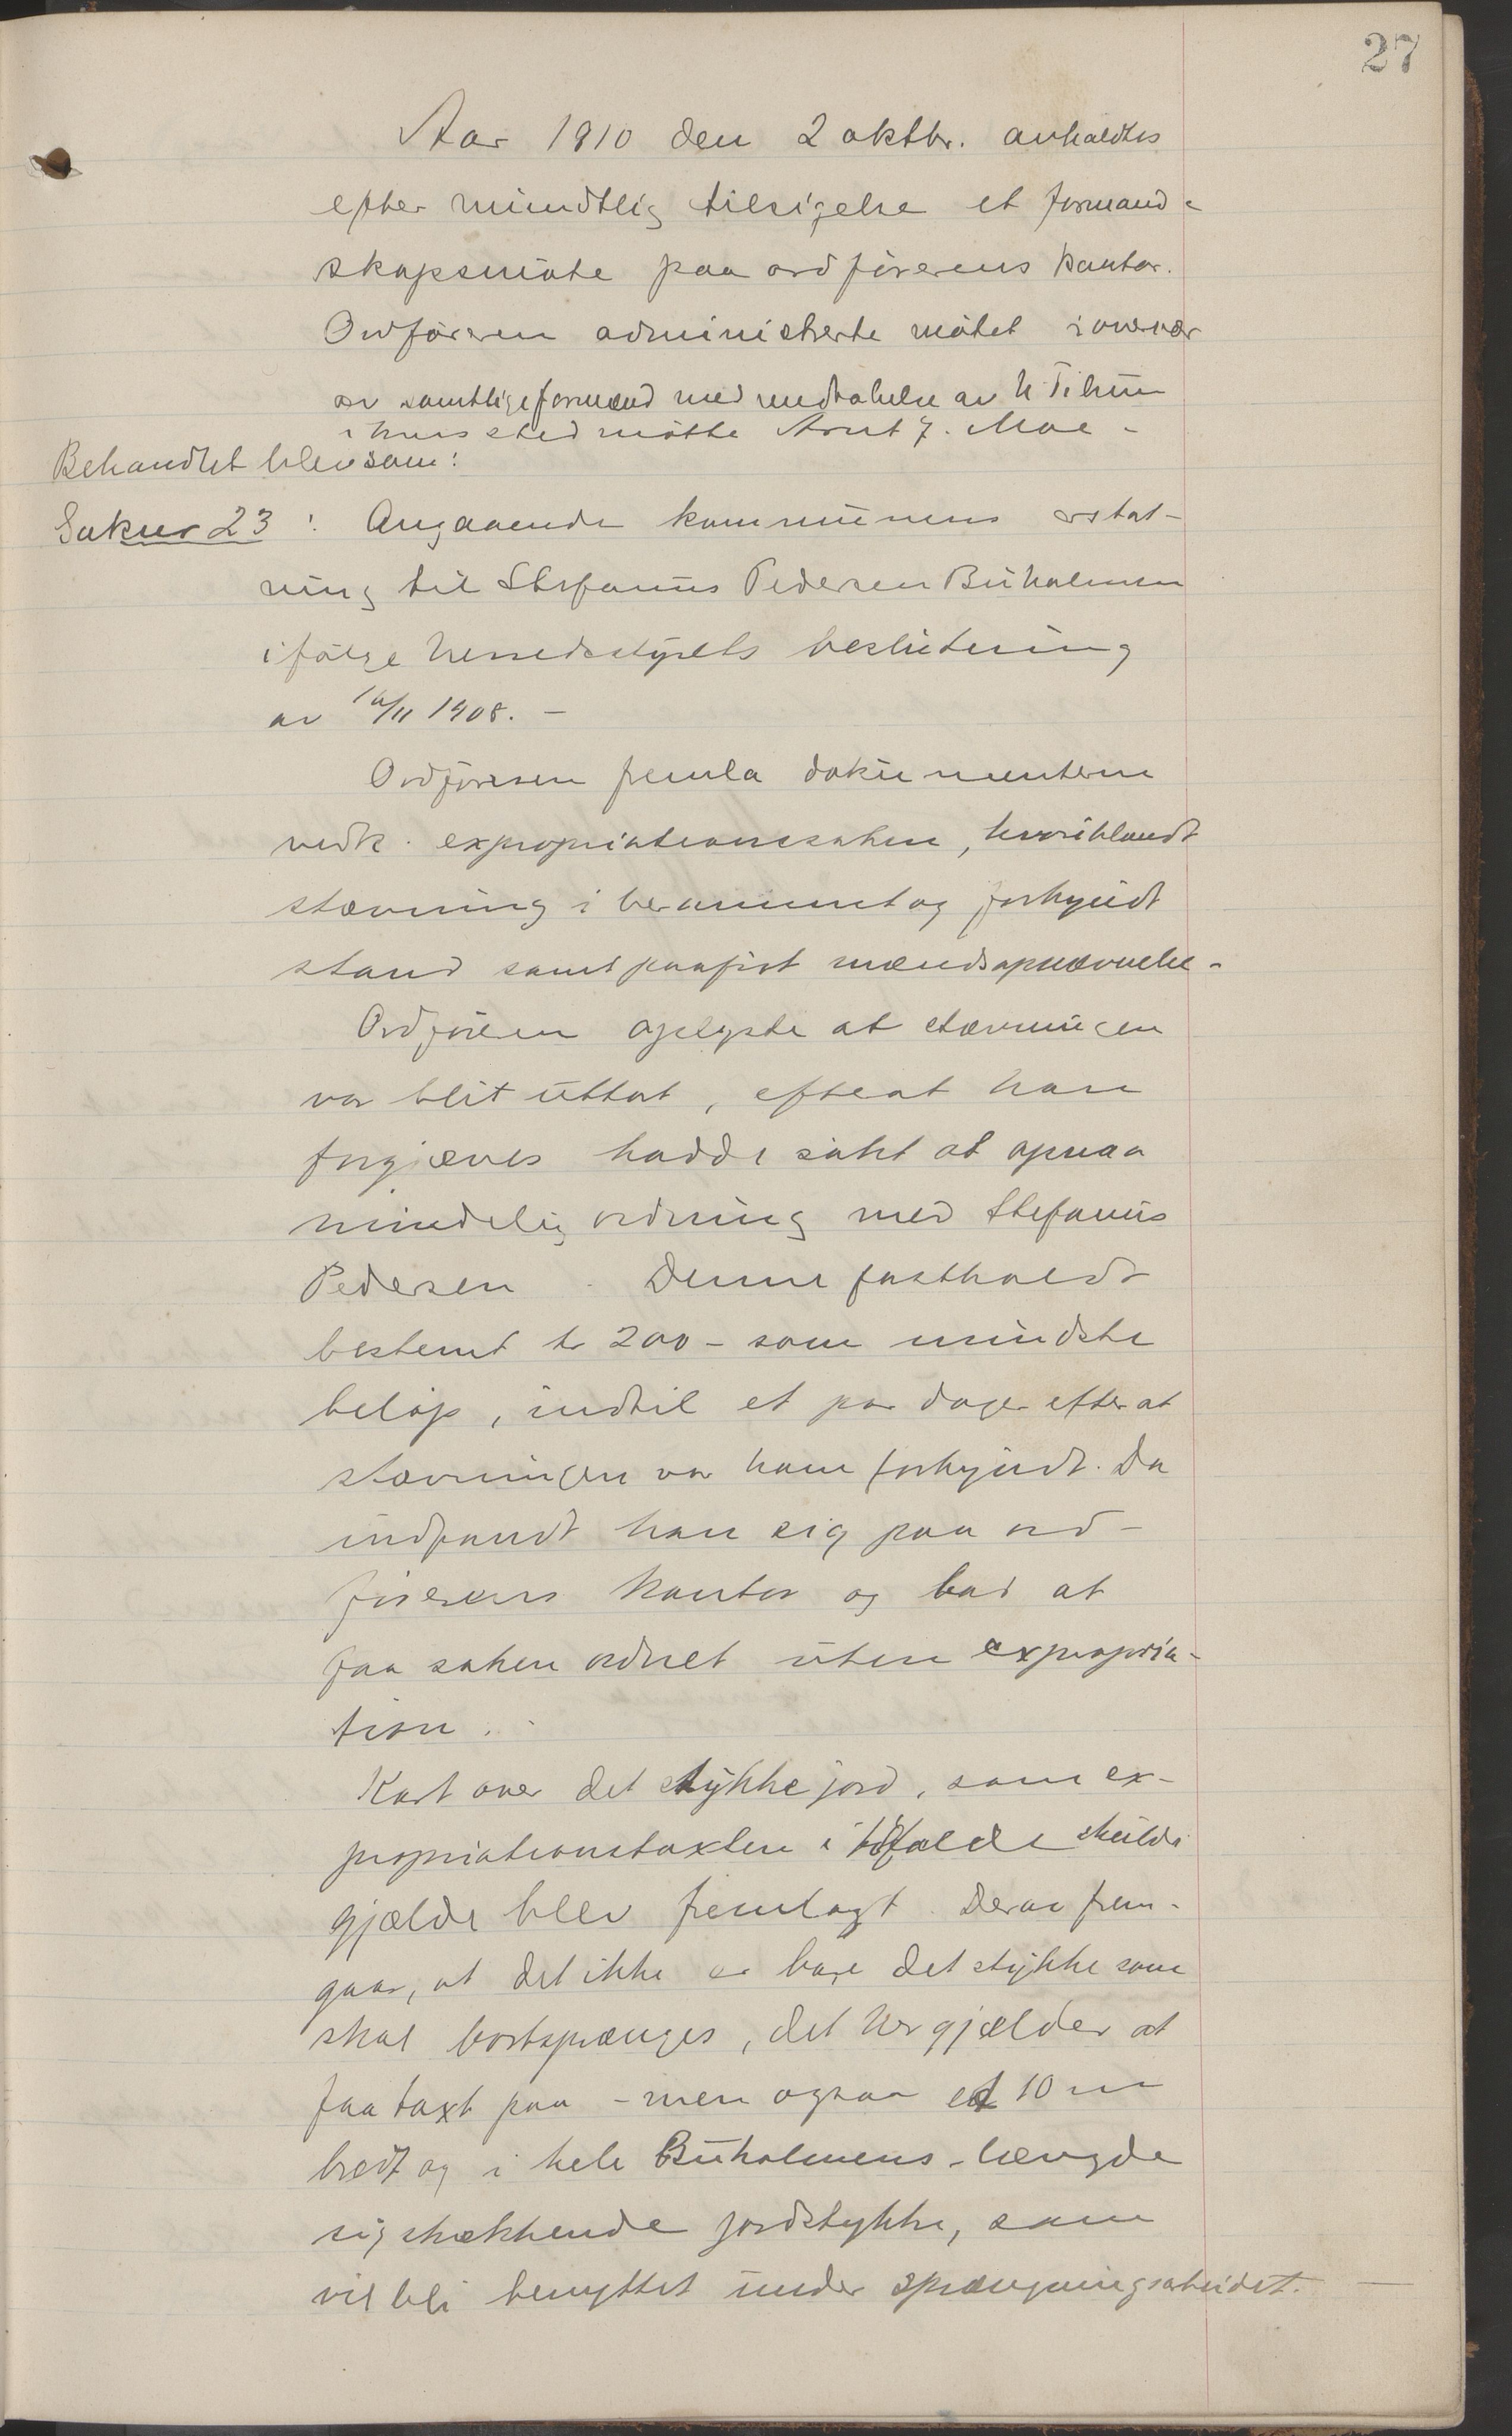 27
Aar 1910 den 2 oktbr. avholdtes
efter mundtlig tilsigelse et formand-
skapsmöte paa ordförerens kontor.
Ordföreren administrerte mötet i overvær
av samtlige formænd med undtakelse av
i hvis sted mötte Arnt J. Moe -
Behandlet blev som:
Saknr 23 : Angaaende kommunens erstat-
ning til Stefanus Pedersen Buholmen
ifölge herredsstyrets beslutning
av /11 1908. -
Ordföreren fremla dokumenterne
vedk. expropriationssaken, hvoriblandt
stævning i berammet og forkyndt
stand samt paafört mændsopnævnelse.
Ordföreren oplyste at stævningen
var blit uttat, efterat han
forgjæves hadde sökt at opnaa
mindelig ordning med Stefanus
Pedersen. Denne fastholdt
bestemt kr 200 - som mindste
belöp, indtil et par dager efter at
stævningen var ham forkyndt. Da
indfandt han sig paa ord-
förerens kontor og bad at
faa saken ordnet uten expropria-
tion.
Kart over det stykke jord, som ex-
propriationstaxten i tilfælde skulde
gjælde blev fremlagt. Derav frem-
gaar, at det ikke er bare det stykke som
skal bortspænges, det her gjælder at
faa taxt paa - men ogsaa et 10 m
bredt og i hele Buholmens længde
sig strækkende jordstykke, som
vil bli benyttet under sprængningsarbeidet. -